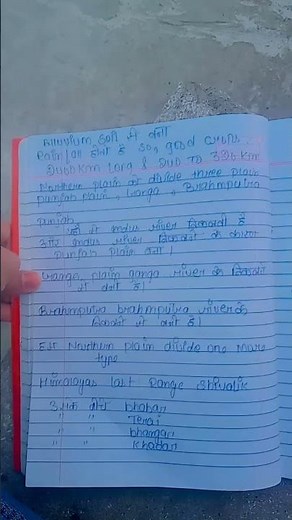 Alluvium इसी से बनी
Rainfall होती है so, good
2400 Km Long & 240 To 320 Km
Northern plain को divide three plain
punjab plain, Ganga, Brahmputra
Punjab
से indus river निकलती है
और indus river निकलने के कारण
Punjab plain बना।
Ganga plain ganga river के निकलने
से बने है।
Brahmputra brahmputra river के
निकलने से बने है।
Est Northern plain divide one more
type
Himalayas last Range Shivalik
उसके बीच bhabar
" " Terai
" " bhangar
" " khadar